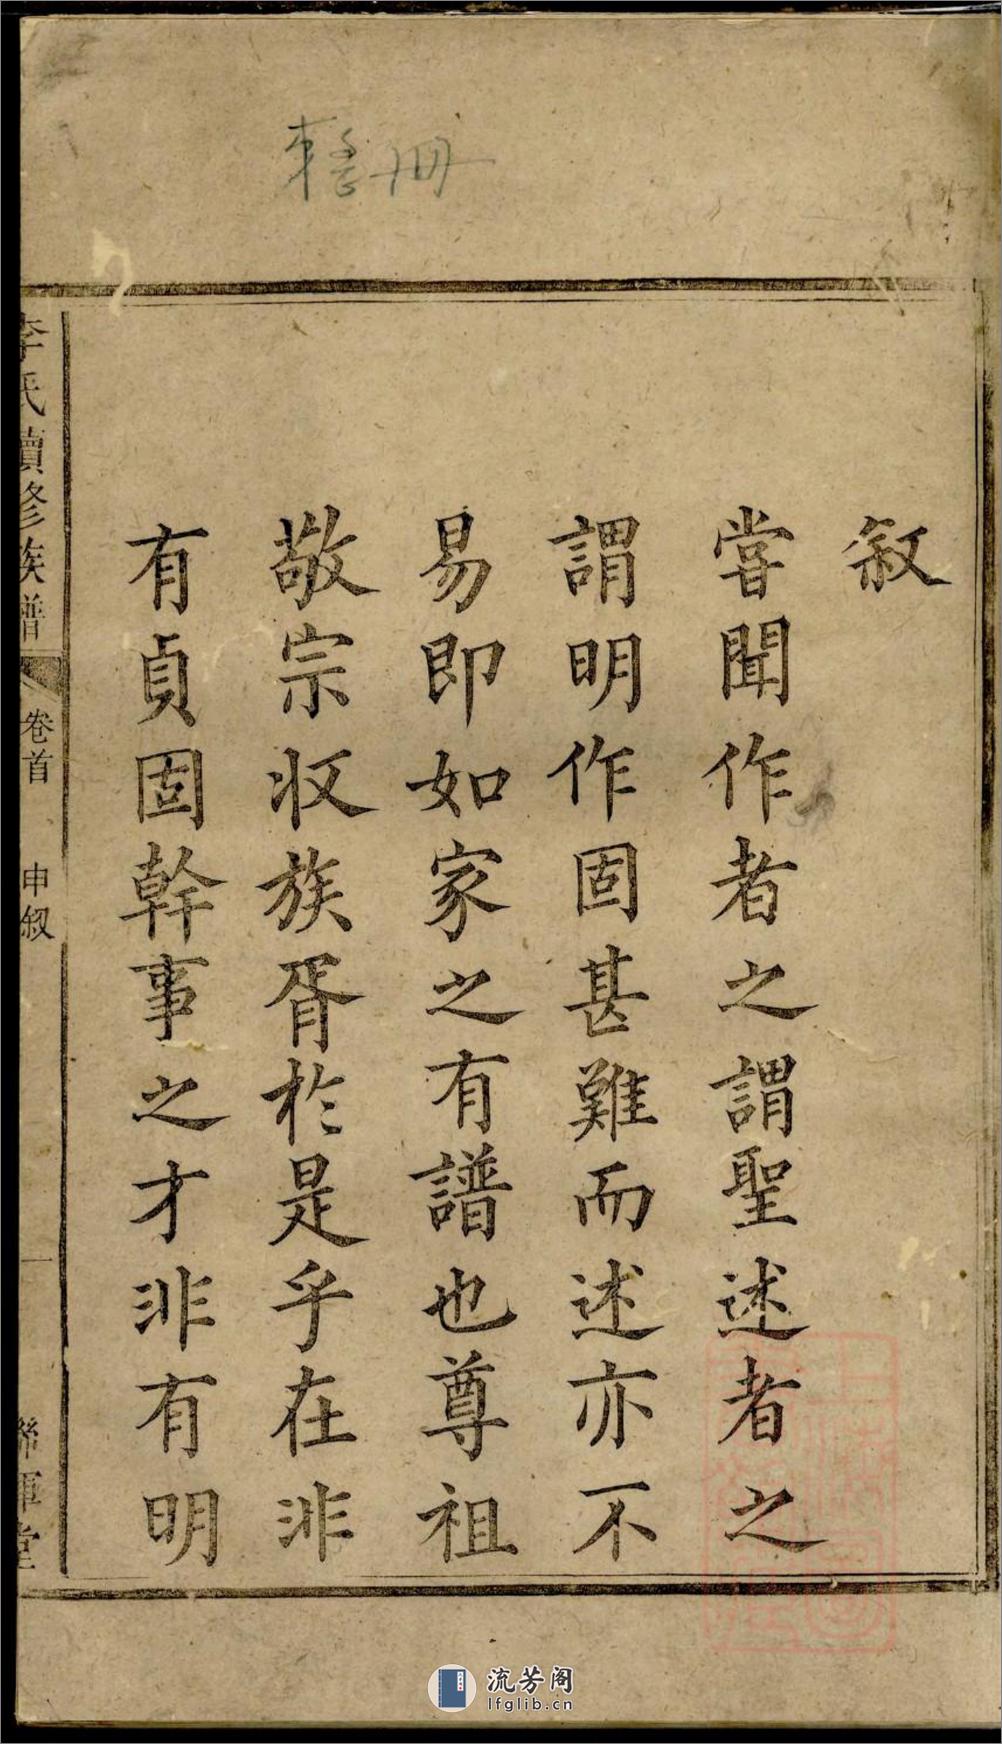 整冊
叙
嘗聞作者之謂聖述者之
謂明作固甚難而述亦不
易即如家之有譜也尊祖
敬宗収族胥於是乎在非
有貞固幹事之才非有明
李氏續修族譜
卷首
申叙
一
聯軍堂
流芳阁
lfglib.cn